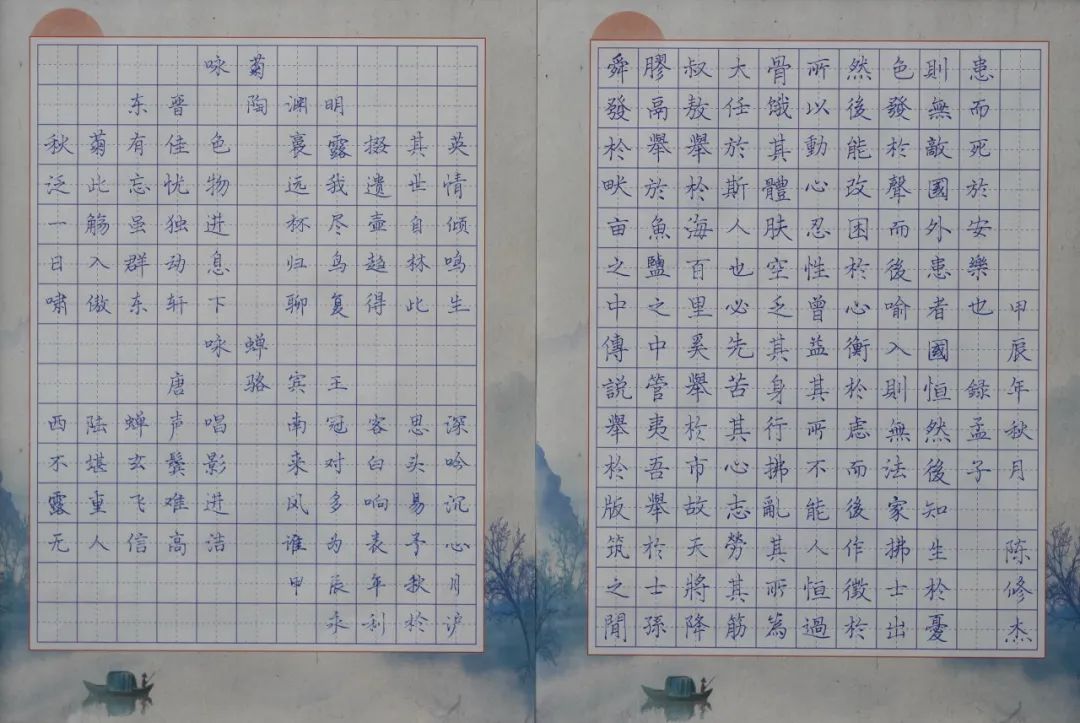 咏菊
东晋 陶渊明
秋菊有佳色 裛露掇其英
泛此忘忧物 远我遗世情
一觞虽独进 杯尽壶自倾
日入群动息 归鸟趋林鸣
啸傲东轩下 聊复得此生
咏蝉
唐 骆宾王
西陆蝉声唱 南冠客思深
不堪玄鬓影 来对白头吟
露重飞难进 风多响易沉
无人信高洁 谁为表予心
甲辰年秋月
来利於沪
舜發於畎亩之中傳説舉於版筑之間
膠鬲舉於魚鹽之中管夷吾舉於士孫
叔敖舉於海百里奚舉於市故天將降
大任於斯人也必先苦其心志勞其筋
骨饿其體肤空乏其身行拂亂其所為
所以動心忍性曾益其所不能人恒過
然後能改困於心衡於虑而後作徵於
色發於聲而後喻入則無法家拂士出
則無敵國外患者國恒然後知生於憂
患而死於安樂也 録孟子
甲辰年秋月 陈修杰